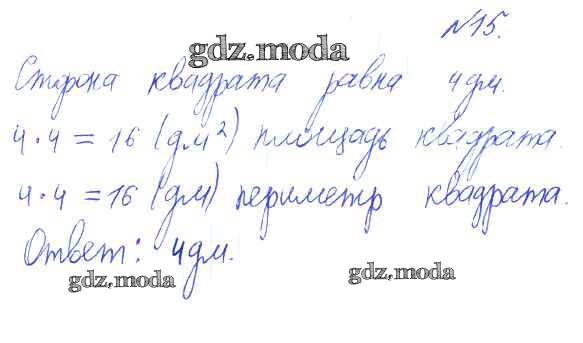 №15.
gdz.moda
Сторона квадрата равна 4дм.
4·4=16 (дм²) площадь квадрата.
4·4=16 (дм) периметр квадрата.
Ответ: 4дм.
gdz.moda
gdz.moda